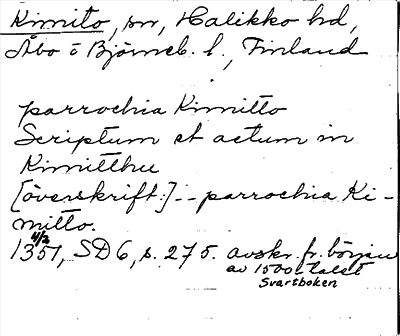 Kimito, sn, Halikko hd,
Åbo o Björneb. l., Finland
parrochia Kimitto
Scriptum et actum in
Kimitthu
[överskrift:] -- parrochia Ki-
mitto.
4/2
1357, SD 6, s. 275. avskr. fr. början
av 1500-talet
Svartboken